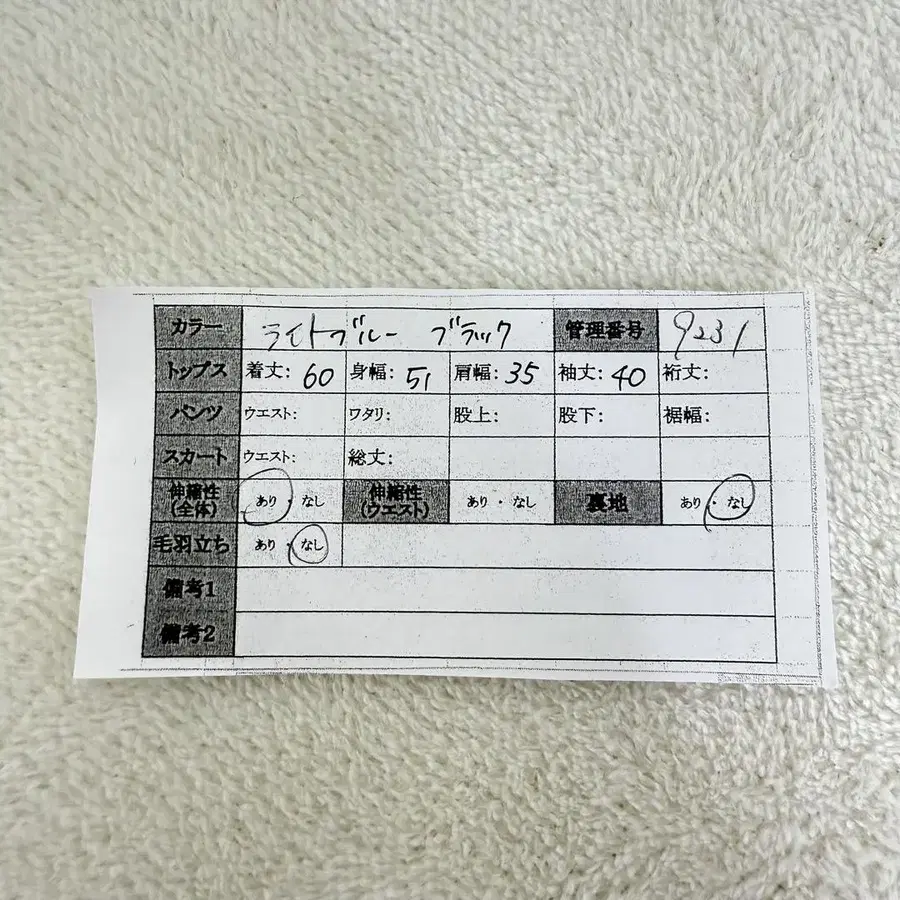 カラー ライトブルー ブラック 管理番号 9231
トップス 着丈: 60 身幅: 51 肩幅: 35 袖丈: 40 裄丈:
パンツ ウエスト: ワタリ: 股上: 股下: 裾幅:
スカート ウエスト: 総丈:
伸縮性(全体) あり・なし 伸縮性(ウエスト) あり・なし 裏地 あり・なし
毛羽立ち あり・なし
備考1
備考2